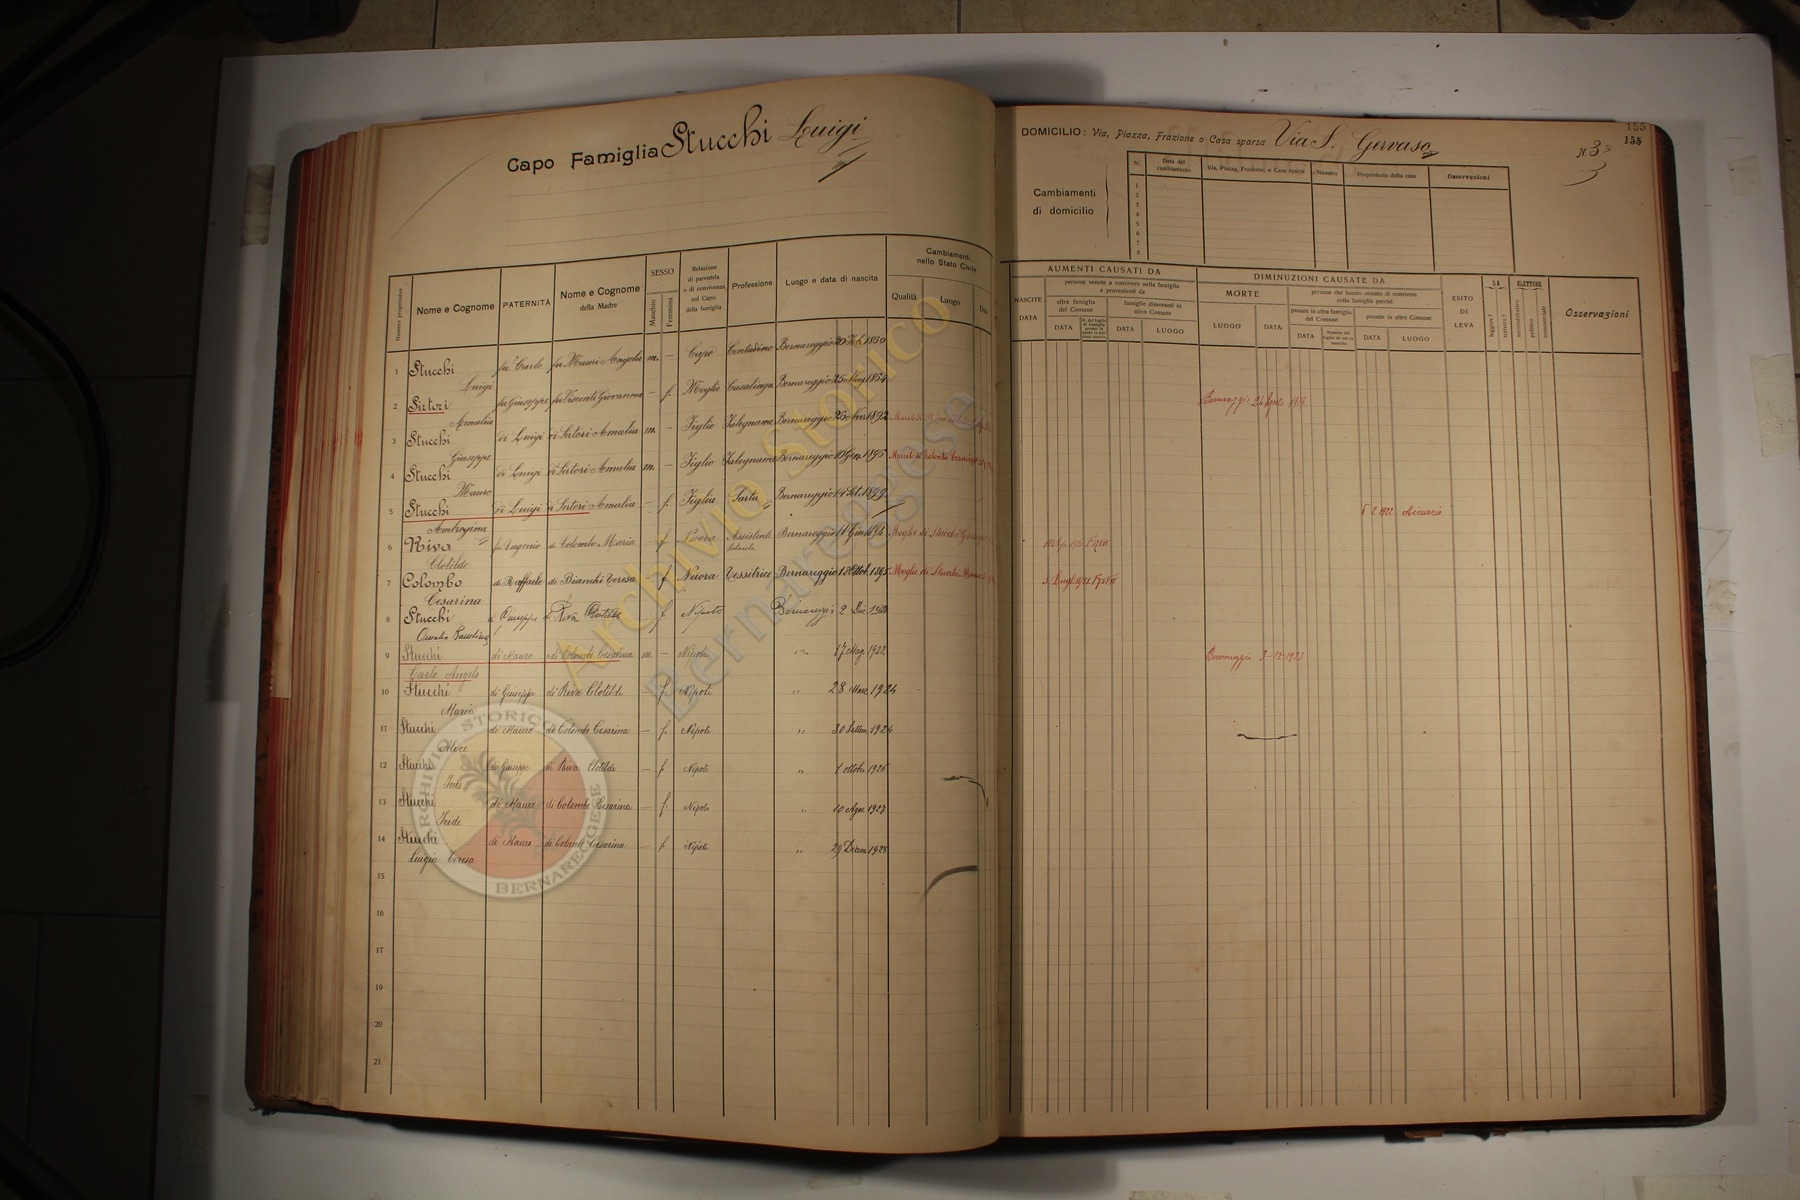 Capo Famiglia Stucchi Luigi
Numero progressivo
Nome e Cognome
PATERNITÀ
Nome e Cognome
della Madre
SESSO
Maschio
Femmina
Relazione
di parentela
o di convivenza
col Capo
della famiglia
Professione
Luogo e data di nascita
Cambiamenti
nello Stato Civile
Qualità
Luogo
Data
1 Stucchi Luigi fu Carlo fu Mauri Angela m. — Capo Contadino Bernareggio 20 Feb. 1850
2 Sirtori Amalia fu Giuseppe fu Visconti Giovanna — f. Moglie Casalinga Bernareggio 25 1854
3 Stucchi Giuseppe di Luigi di Sirtori Amalia m. — Figlio Falegname Bernareggio 26 Nov. 1892 Marito di
4 Stucchi Mauro di Luigi di Sirtori Amalia m. — Figlio Falegname Bernareggio 10 Gen. 1895 Marito di Colombo Cesarina
5 Stucchi Ambrogina di Luigi di Sirtori Amalia — f. Figlia Sarta Bernareggio 14 Set. 1899
6 Riva Clotilde fu Eugenio di Colombo Maria — f Nuora Assistente Bernareggio 11 Giu. 1894 Moglie di Stucchi
7 Colombo Cesarina di Raffaele di Bianchi Teresa f Nuora Tessitrice Bernareggio 1895 Moglie di Stucchi
8 Stucchi di Giuseppe di Riva Clotilde f Nipote Bernareggio 2 Dic
9 Stucchi Carlo Angelo di Mauro di Colombo Cesarina m. — Nipote 17 Mag. 1922
10 Stucchi Maria di Giuseppe di Riva Clotilde — f. Nipote " 28 Mar. 1924
11 Stucchi Alice di Mauro di Colombo Cesarina — f. Nipote " 30 Settem. 1924
12 Stucchi Ines di Giuseppe di Riva Clotilde — f Nipote " 1 ottobre
13 Stucchi Iride di Mauro di Colombo Cesarina — f. Nipote " 10 Ago. 1927
14 Stucchi Luigia Teresa di Mauro di Colombo Cesarina — f Nipote " 29 Dicem.
15
16
17
18
19
20
21
DOMICILIO: Via, Piazza, Frazione o Casa sparsa Via S. Gervaso
N. 3
155
155
Cambiamenti
di domicilio
N.
Data del
cambiamento
Via, Piazza, Frazione, o Casa sparsa
Numero
Proprietario della casa
Osservazioni
1
2
3
4
5
6
7
8
AUMENTI CAUSATI DA
NASCITE
DATA
persone venute a convivere nella famiglia
e provenienti da
altra famiglia
del Comune
famiglie dimoranti in
altro Comune
DATA
DATA
LUOGO
DIMINUZIONI CAUSATE DA
MORTE
LUOGO
DATA
persone che hanno cessato di convivere
colla famiglia perchè
passate in altra famiglia
del Comune
passate in altro Comune
DATA
DATA
LUOGO
ESITO
DI
LEVA
SA
leggere?
scrivere?
ELETTORE
amministrativo
politico
commerciale
Osservazioni
Bernareggio 24 Agosto
6 2 1922 Aicurzio
Bernareggio 3-12-1923
Archivio Storico
Bernareggese
ARCHIVIO STORICO
BERNAREGGESE